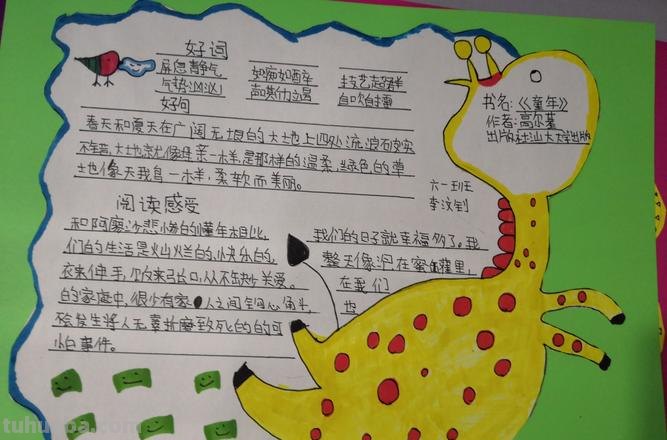 好词
屏息静气 如痴如醉 技艺超群
气势汹汹 声嘶力竭 自吹自擂
好句
春天和夏天在广阔无垠的大地上四处流浪
大地就像母亲一样,是那样的温柔,绿色的草
地像天鹅一样,柔软而美丽。
六一班
阅读感受
和阿廖沙悲惨的童年相比,
们的生活是灿烂的,快乐的,
衣来伸手,饭来张口,从不缺少关爱。
的家庭中,很少有家人之间勾心斗角,
会发生将人无辜折磨致死的的可
怕事件。
我们的日子就幸福多了。我
整天像泡在蜜罐里,
在我们
也
书名:《童年》
作者:高尔基
出版社:汕大大学出版
tuhuwa.com